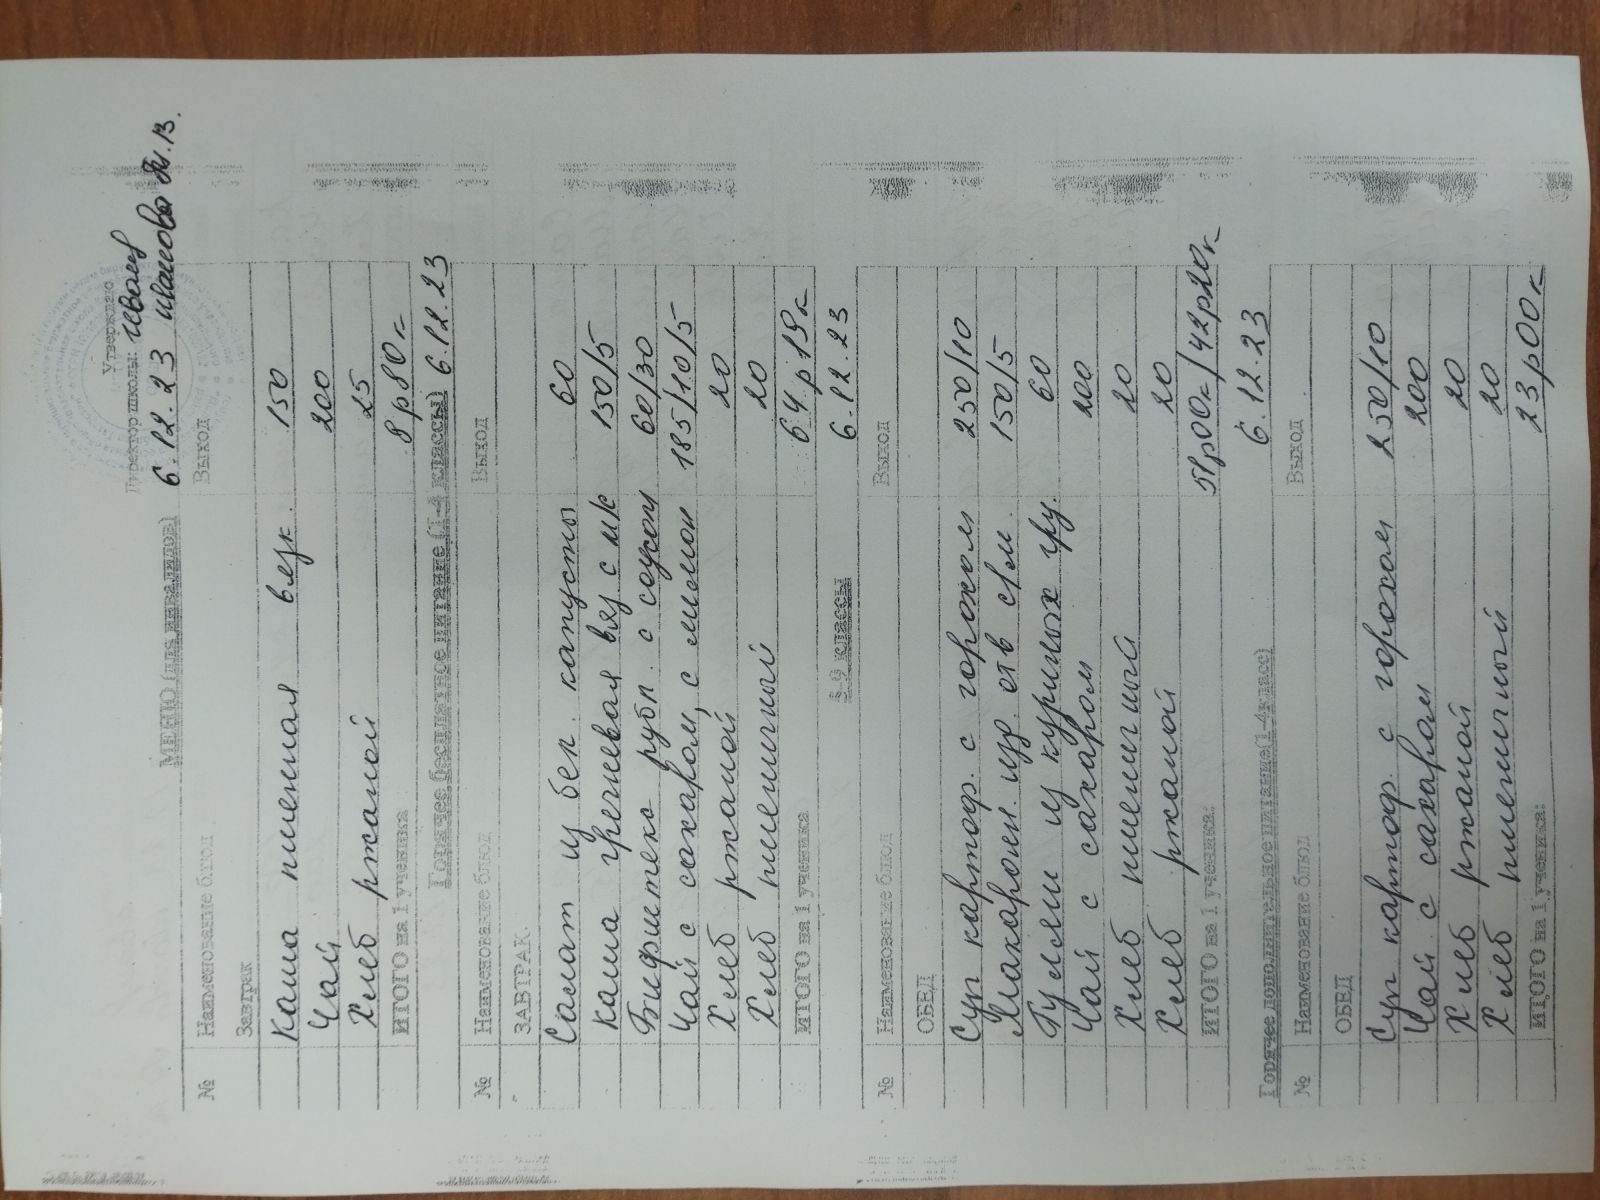 Утверждаю
Директор школы:
6.12.23
МЕНЮ (для инвалидов)
№ Наименование блюд Выход
Завтрак
Каша пшенная вязк. 150
Чай 200
Хлеб ржаной 25
ИТОГО на 1 ученика 8р80к
Горячее бесплатное питание (1-4 классы) 6.12.23
№ Наименование блюд Выход
ЗАВТРАК.
Салат из бел. капусты 60
Каша гречневая вяз с мк 150/5
Бифштекс рубл. с соусом 60/30
Чай с сахаром, с лимон 185/10/5
Хлеб ржаной 20
Хлеб пшеничный 20
ИТОГО на 1 ученика 64р19к
6.12.23
5-9 классы
№ Наименование блюд Выход
ОБЕД
Суп картоф. с горохом 250/10
Макарон. изд. отв с/м. 150/5
Гуляш из куриных гр. 60
Чай с сахаром 200
Хлеб пшеничный 20
Хлеб ржаной 20
ИТОГО на 1 ученика: 51р00к/42р20к
6.12.23
Горячее дополнительное питание(1-4класс)
№ Наименование блюд Выход
ОБЕД
Суп картоф. с горохом 250/10
Чай с сахаром 200
Хлеб ржаной 20
Хлеб пшеничный 20
ИТОГО на 1 ученика: 23р00к